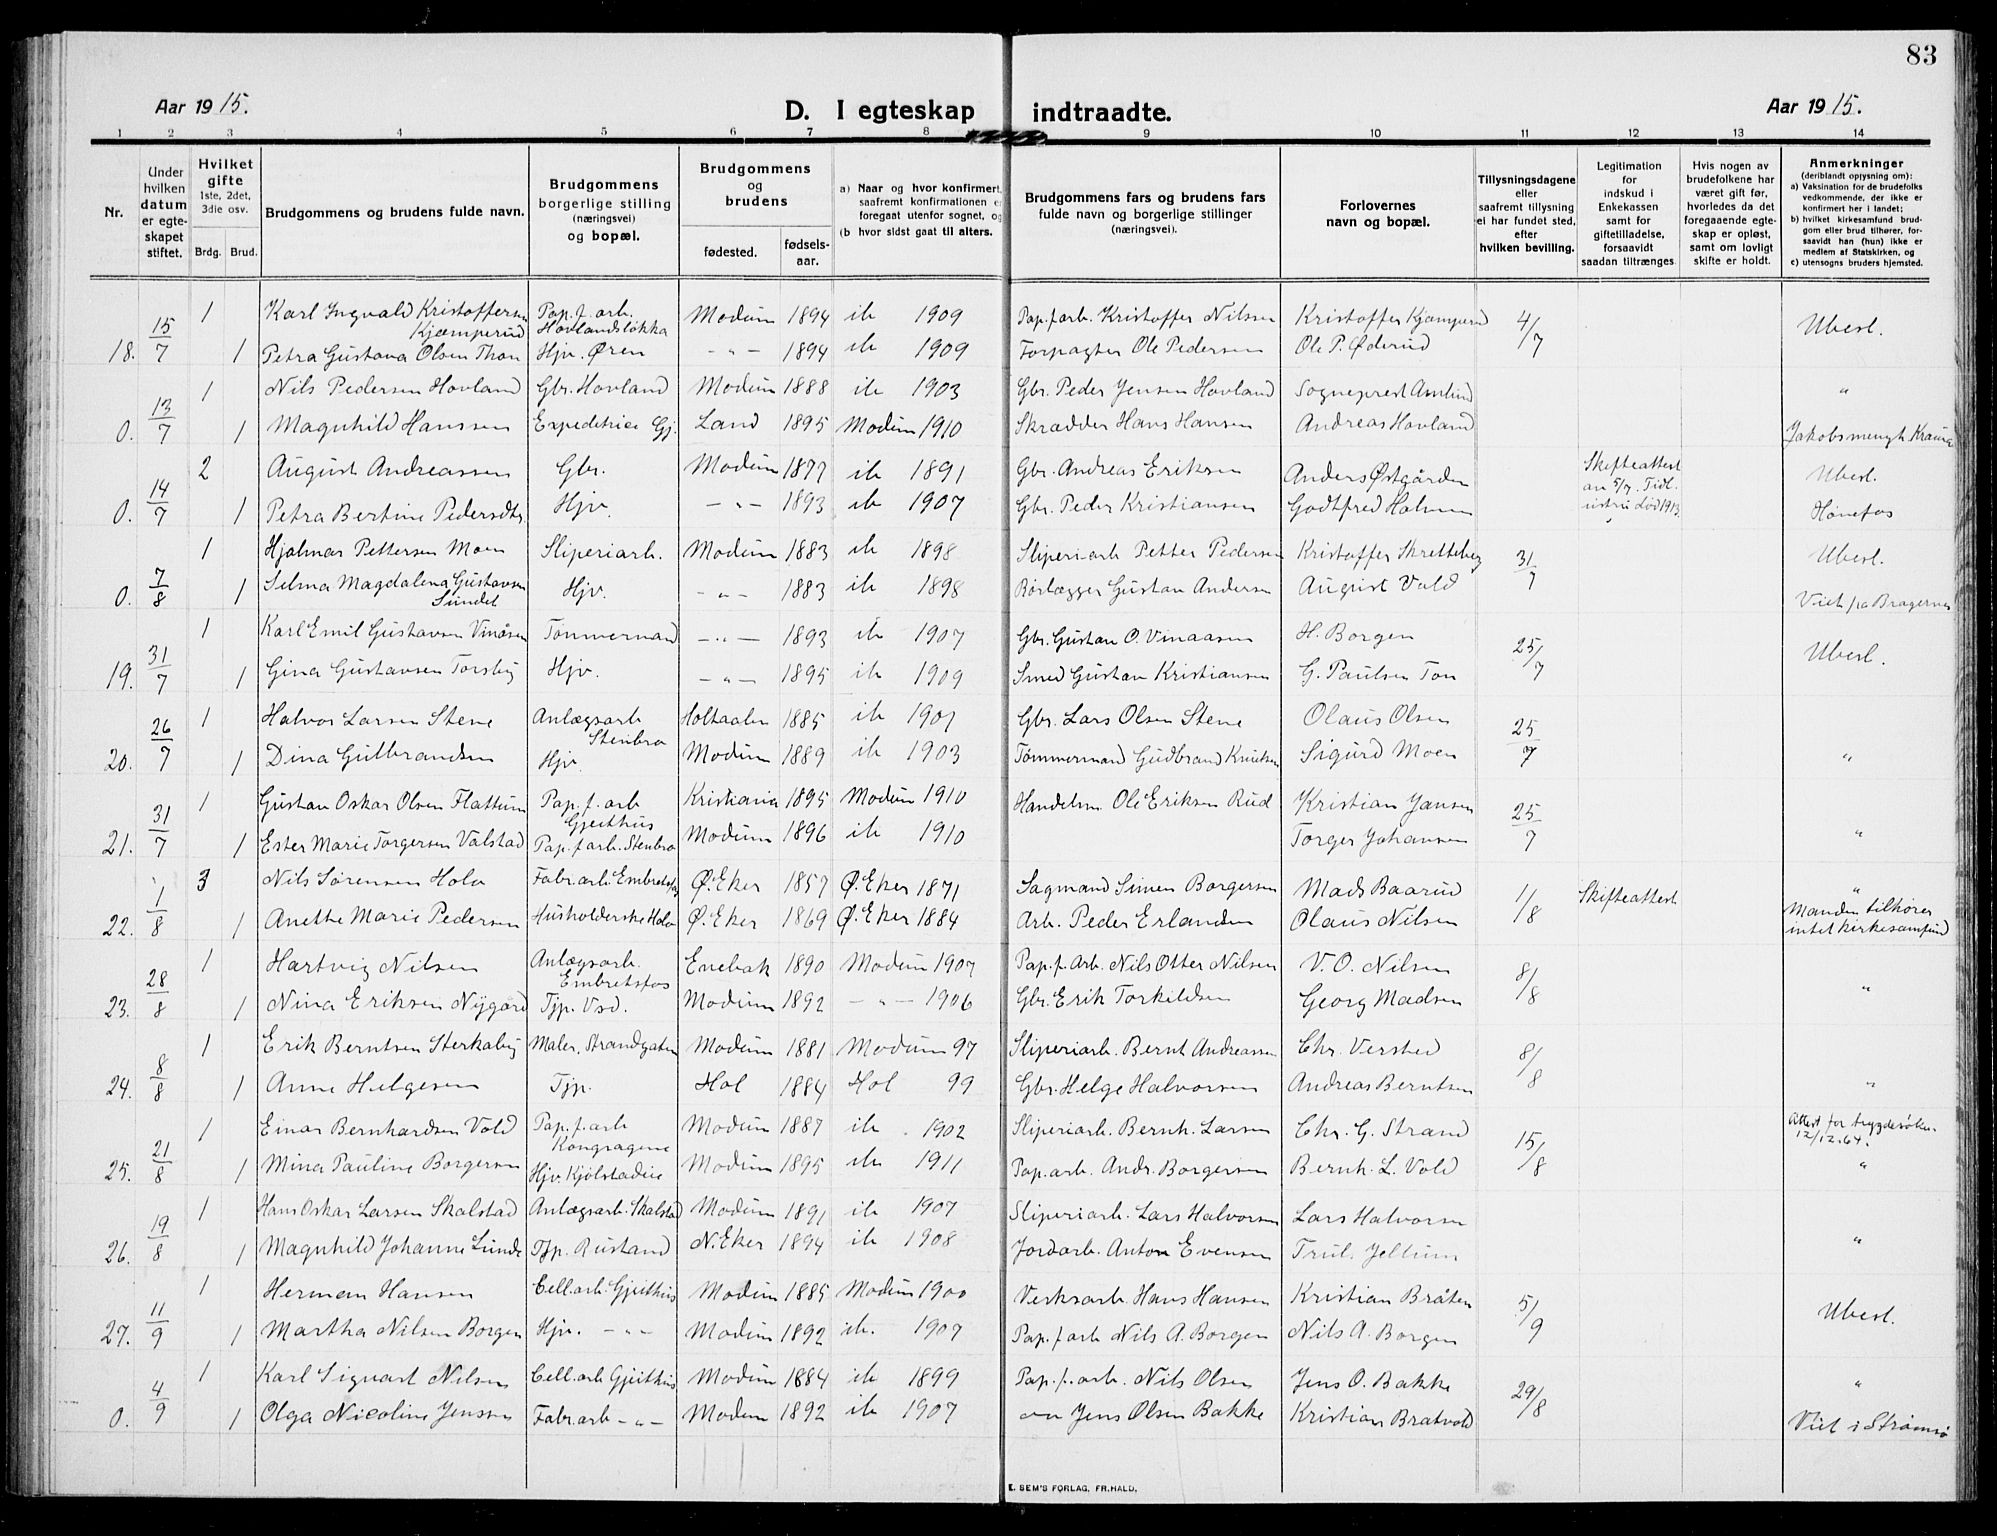 83
Aar 1915. D. I egteskap indtraadte. Aar 1915.
1 2 3 4 5 6 7 8 9 10 11 12 13 14
Nr.
Under hvilken datum er egteskapet stiftet.
Hvilket gifte 1ste, 2det, 3die osv. Brdg. Brud.
Brudgommens og brudens fulde navn.
Brudgommens borgerlige stilling (næringsvei) og bopæl.
Brudgommens og brudens fødested. fødselsaar.
a) Naar og hvor konfirmert, saafremt konfirmationen er foregaat utenfor sognet, og
(b hvor sidst gaat til alters.
Brudgommens fars og brudens fars fulde navn og borgerlige stillinger (næringsvei).
Forlovernes navn og bopæl.
Tillysningsdagene eller saafremt tillysning ei har fundet sted, efter hvilken bevilling.
Legitimation for indskud i Enkekassen samt for giftetilladelse, forsaavidt saadan tiltrænges
Hvis nogen av brudefolkene har været gift før, hvorledes da det foregaaende egteskap er opløst, samt om lovligt skifte er holdt.
Anmerkninger (deriblandt opysning om):
a) Vaksination for de brudefolks vedkommende, der ikke er konfirmert her i landet;
b) hvilket kirkesamfund brudgom eller brud tilhører, forsaavidt han (hun) ikke er medlem af Statskirken, og
c) utensogns bruders hjemsted.
1 Karl Ingvald Kristoffersen Kjæmperud Pap.f.arb. Hovlandsløkka Modum 1894 ib 1909 Pap.f.arb. Kristoffer Nilsen Kristoffer Kjæmperud 4/7 Ubesl.
18. 15/7 1 Petra Gustava Olsen Thon Hjv. Øren -"- 1894 ib 1909 Forpagter Ole Pedersen Ole P. Øderud
1 Nils Pedersen Hovland Gbr. Hovland Modum 1888 ib 1903 Gbr. Peder Jensen Hovland Sogneprest Amlund "
0. 13/7 1 Magnhild Hanssen Expeditrice Gj. Land 1895 Modum 1910 Skrædder Hans Hansen Andreas Hovland Jakobsmengh.
2 August Andreassen Gbr. Modum 1877 ib 1891 Gbr. Andreas Eriksen Anders Østgården Skifteattest av 5/7. Tidl. ustru død 1913. Ubesl.
0. 14/7 1 Petra Bertine Pedersdtr. Hjv. -"- 1893 ib 1907 Gbr. Peder Kristiansen Godtfred Holmen Hønefos
1 Hjalmar Pettersen Moen Sliperiarb. Modum 1883 ib 1898 Sliperiarb Petter Pedersen Kristoffer Skretteberg 31/7 Ubesl.
0. 7/8 1 Selma Magdalena Gustavsen Sundet Hjv. -"- 1883 ib 1898 Rørlægger Gustav Andersen August Vold Viet på Bragernes
1 Karl Emil Gustavsen Vinåsen Tømmermand -"- 1893 ib 1907 Gbr. Gustav O. Vinaasen H. Borgen 25/7 Ubesl.
19. 31/7 1 Gina Gustavsen Torsby Hjv. -"- 1895 ib 1909 Smed Gustav Kristiansen G. Paulsen Ton
1 Halvor Larsen Stene Anlægsarb Stenbro Holtaalen 1885 ib 1901 Gbr. Lars Olsen Stene Olaus Olsen 25/7
20. 26/7 1 Dina Gulbrandsen Hjv. Modum 1889 ib 1903 Tømmermand Gudbrand Knutsen Sigurd Moen "
1 Gustav Oskar Olsen Flattum Pap.f.arb Gjeithus Kristiania 1895 Modum 1910 Handelsm Ole Eriksen Rud Kristian Jansen 25/7
21. 31/7 1 Ester Marie Torgersen Valstad Pap.f.arb. Stenbro Modum 1896 ib 1910 Torger Johansen "
3 Nils Sørensen Hola Fabr.arb. Embretsfos Ø. Eker 1857 Ø. Eker 1871 Sagmand Simen Borgersen Mads Baarud 1/8 Skifteattest "
22. 1/8 1 Anette Marie Pedersen Husholderske Hola Ø. Eker 1869 Ø. Eker 1884 Arb. Peder Erlandsen Olaus Nilsen Manden tilhører intet kirkesamfund
1 Hartvig Nilsen Anlægsarb. Embretsfos Enebak 1890 Modum 1907 Pap.f.Arb. Nils Otter Nilsen V. O. Nilsen 8/8
23. 28/8 1 Nina Eriksen Nygård Tjp. Modum 1892 -"- 1906 Gbr. Erik Torkildsen Georg Madsen "
1 Erik Berntsen Sterkaby Maler, Strandgaten Modum 1881 Modum 97 Sliperiarb. Bernt Andreassen Chr. Versted 8/8
24. 8/8 1 Anne Helgesen Tjp. Hol 1884 Hol 99 Gbr. Helge Halvorsen Andreas Berntsen "
1 Einar Bernhardsen Vold Pap.f.arb Kongsagene Modum 1887 ib 1902 Sliperiarb. Bernh. Larsen Chr. G. Strand 15/8 Attest for trygdesøkn. 12/12.64.
25. 21/8 1 Mina Pauline Borgersen Hjv. Kjølstadeie Modum 1895 ib 1911 Pap.arb. Andr. Borgersen Bernh. L. Vold "
1 Hans Oskar Larsen Skalstad Anlægsarb. Skalstad Modum 1891 ib 1907 Sliperiarb. Lars Halvorsen Lars Halvorsen
26. 19/8 1 Magnhild Johanne Lunde Tjp. Rustand N. Eker 1894 ib 1908 Jordarb. Anton Evensen Trul. Jellum "
1 Herman Hansen Cell.arb. Gjeithus Modum 1885 Modum 1900 Verksarb. Hans Hansen Kristian Bråten 5/9 Ubesl.
27. 11/9 1 Martha Nilsen Borgen Hjv. -"- Modum 1892 ib. 1907 Pap.f.arb Nils A. Borgen Nils A. Borgen
1 Karl Sigvart Nilsen Cell.arb Gjeithus Modum 1884 ib 1899 Pap.f.arb. Nils Olsen Jens O. Bakke 29/8 "
0. 4/9 1 Olga Nicoline Jenssen Fabr.arb -"- Modum 1892 ib 1907 Jens Olsen Bakke Kristian Bratvold Viet i Strømsø
E. SEM'S FORLAG, FR.HALD.